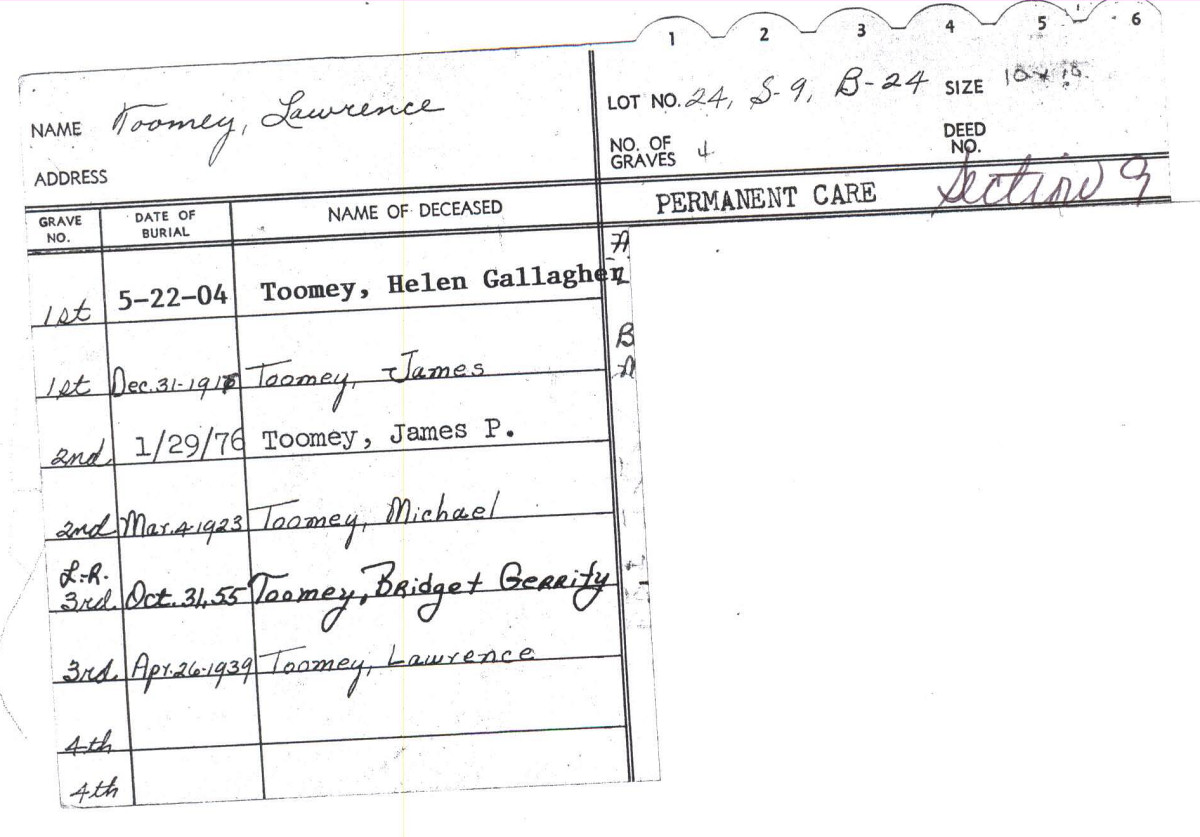 1 2 3 4 5 6
NAME Toomey, Lawrence
LOT NO. 24, S-9, B-24 SIZE
ADDRESS
NO. OF GRAVES 4
DEED NO.
GRAVE NO. DATE OF BURIAL NAME OF DECEASED
PERMANENT CARE Section 9
1st 5-22-04 Toomey, Helen Gallagher
1st Dec. 31-191 Toomey, James
2nd 1/29/76 Toomey, James P.
2nd Mar. 4-1923 Toomey, Michael
L.-R.
3rd Oct. 31, 55 Toomey, Bridget Gerrity
3rd Apr. 26-1939 Toomey, Lawrence
4th
4th